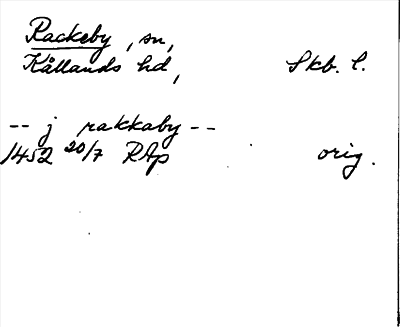 Rackeby, sn,
Kållands hd, Skb. l.
-- j rakkaby --
1452 20/7 RAp orig.